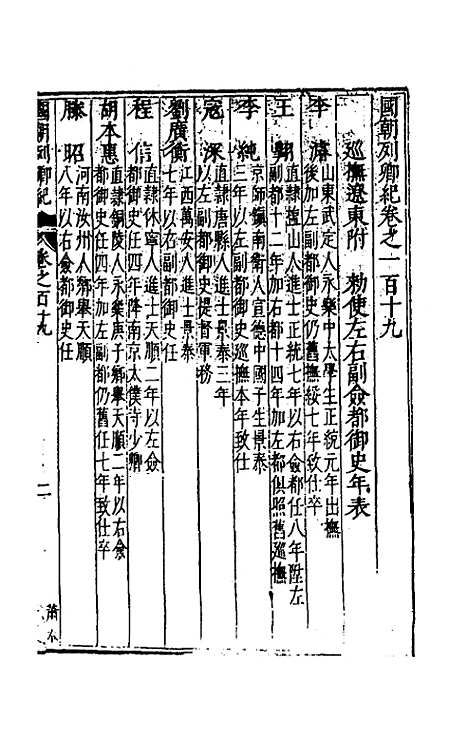 國朝列卿紀卷之一百十九
巡撫遼東附 勅使左右副僉都御史年表
李濬
山東武定人永樂中太學生正統元年出撫
後加左副都御史仍舊撫綏七年致仕卒
王翱
直隸塩山人進士正統七年以右僉都任八年陞左
副都十二年加右都十四年加左都俱照舊巡撫
李純
京師鎮南衛人宣德中國子生景泰
三年以左副都御史巡撫本年致仕
寇深
直隸唐縣人進士景泰三年
以左副都御史提督軍務
劉廣衡
江西萬安人進士景泰
七年以右副都御史任
程信
直隸休寧人進士天順二年以左僉
都御史任四年降南京太僕寺少卿
胡本惠
直隸銅陵人永樂庚子鄉舉天順二年以右僉
都御史任四年加左副都仍舊任七年致仕卒
滕昭
河南汝州人鄉舉天順
八年以右僉都御史任
國朝列卿紀
卷之百十九
一